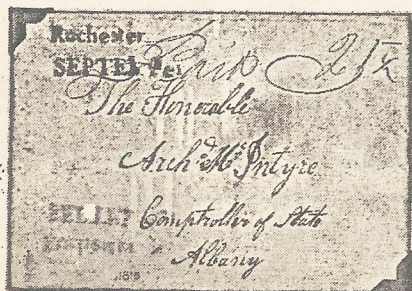 Rochester
Paid 21½
The Honorable
Archd. McIntyre
Comptroller of State
Albany